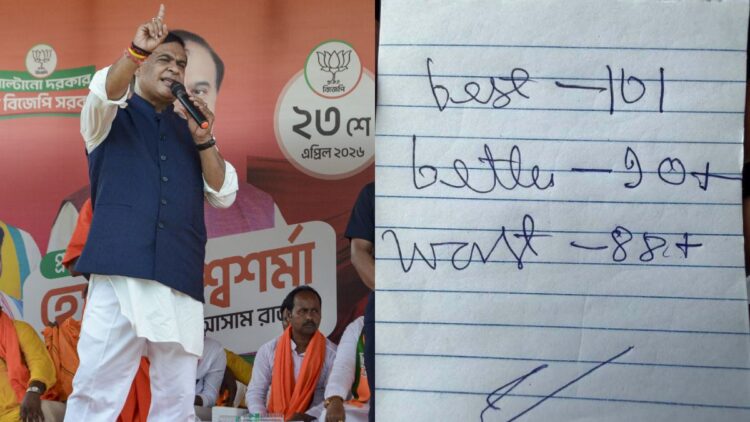 পাল্টানো দরকার
বিজেপি সরকার
বিজেপি
২৩ শে
এপ্রিল ২০২৬
শ্বশর্মা
আসাম রাজ্য
best – 101
better – 90+
worst – 88+